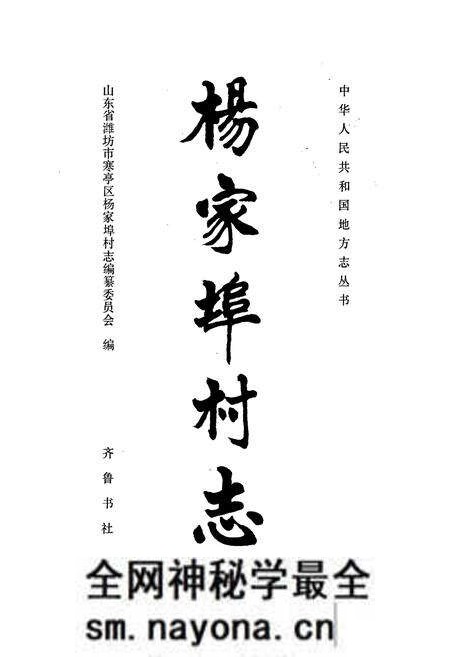 中华人民共和国地方志丛书
楊家埠村志
山东省潍坊市寒亭区杨家埠村志编纂委员会 编
齐鲁书社
全网神秘学最全
sm.nayona.cn